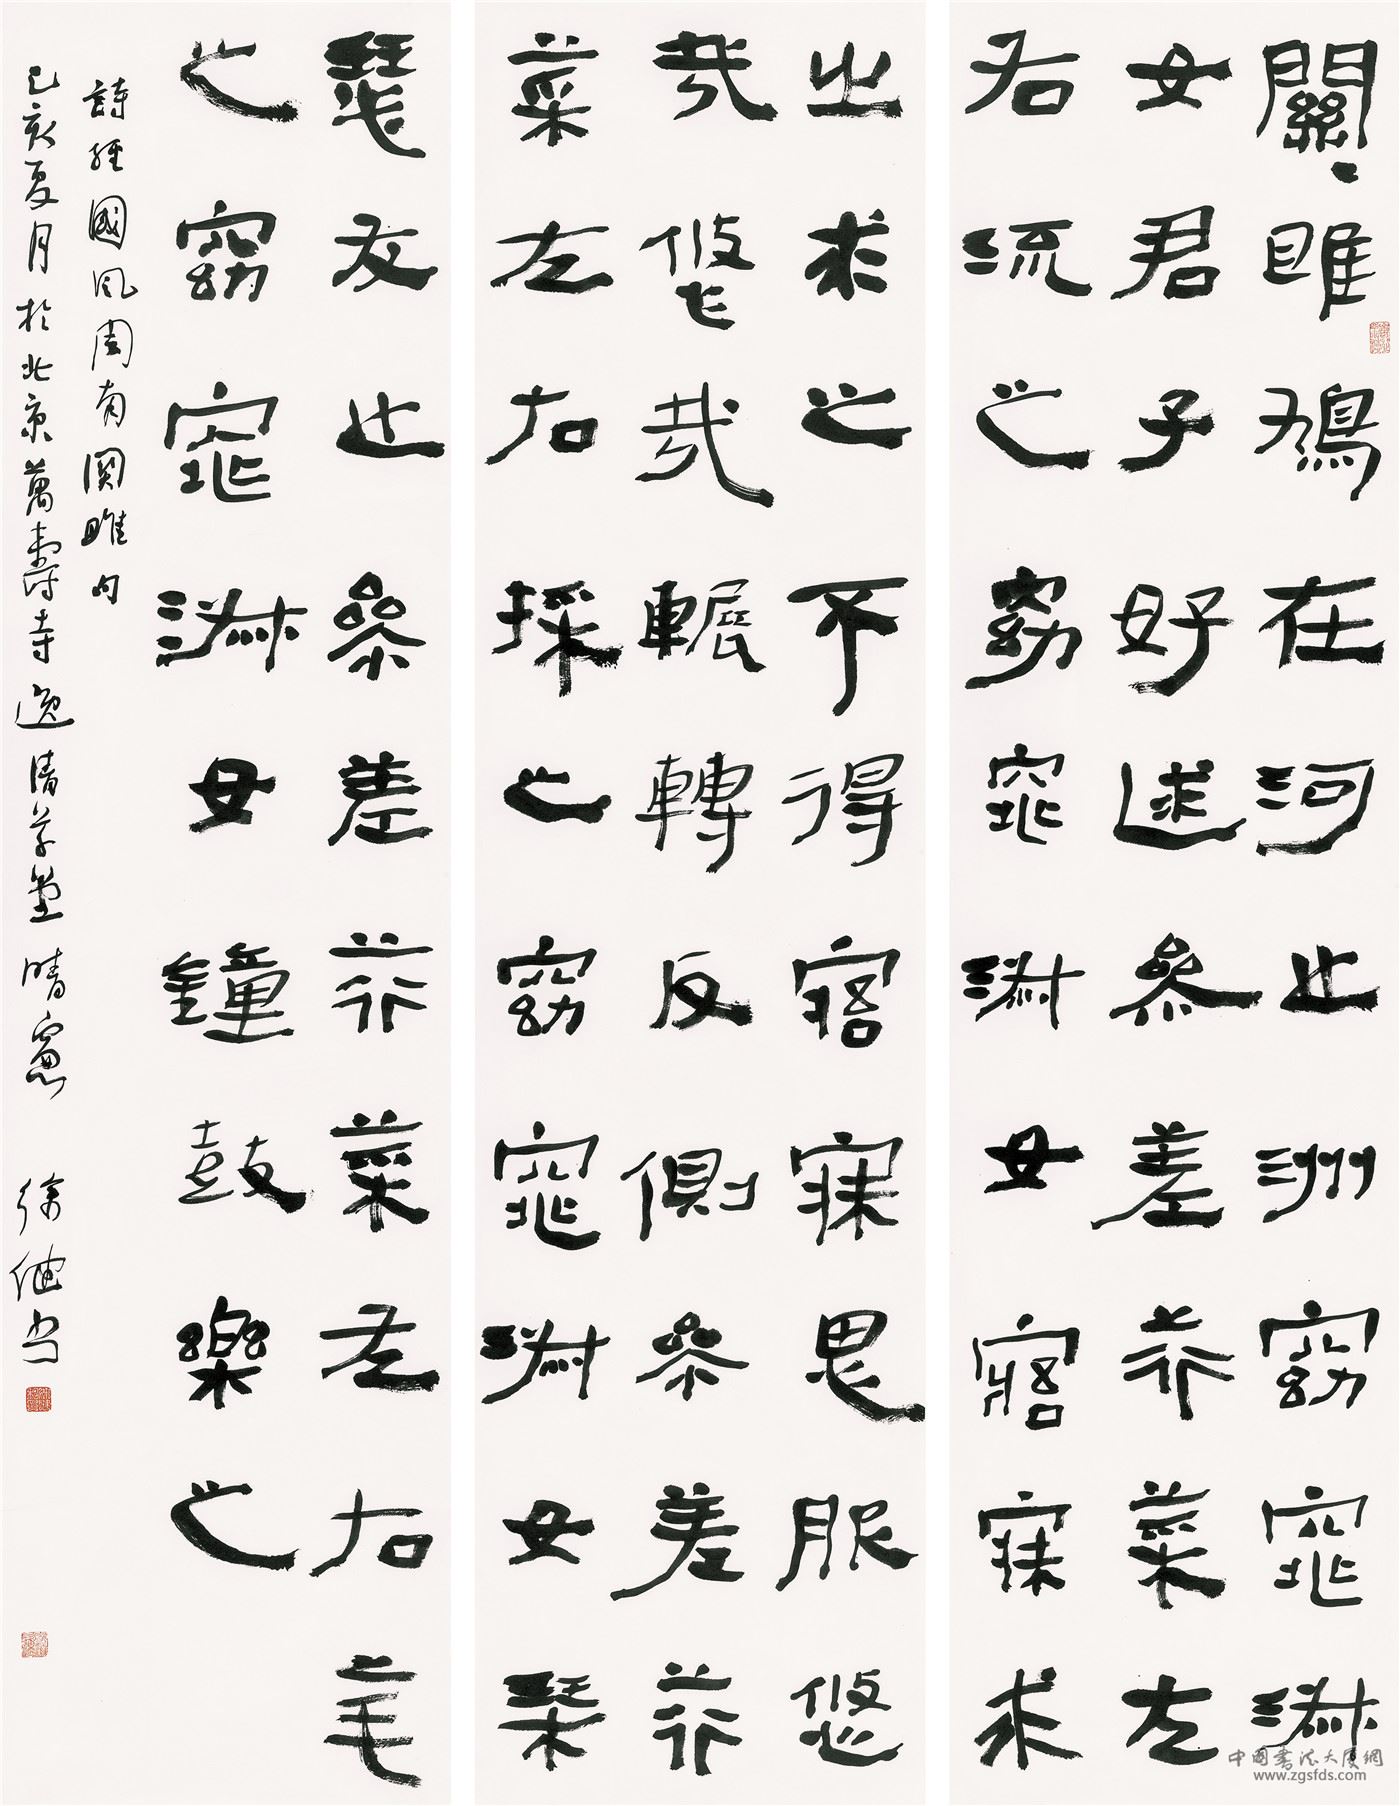 關〻雎鳩在河之洲窈窕淑
女君子好逑參差荇菜左
右流之窈窕淑女寤寐求
之求之不得寤寐思服悠
哉悠哉輾轉反側參差荇
菜左右採之窈窕淑女琴
瑟友之參差荇菜左右芼
之窈窕淑女鐘鼓樂之
詩經國風周南關雎句
己亥夏月於北京萬壽寺逸清草堂晴窗 徐書
中國書法大厦網
www.zgsfds.com